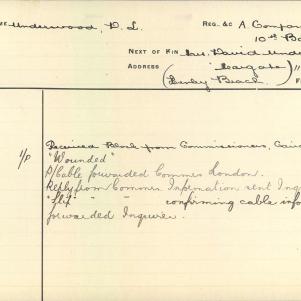 ME Underwood, D. L. REG. &C A. Compa
10th Ba
NEXT OF KIN Mr. David Unde
ADDRESS "Cargate"
Henley Beach.
Received Cable from Commissioners, Cair
1/P "Wounded"
P/Cable forwarded Commrs London.
Reply from Commrs Information sent Inq
" " confirming cable info
forwarded Inquirer.